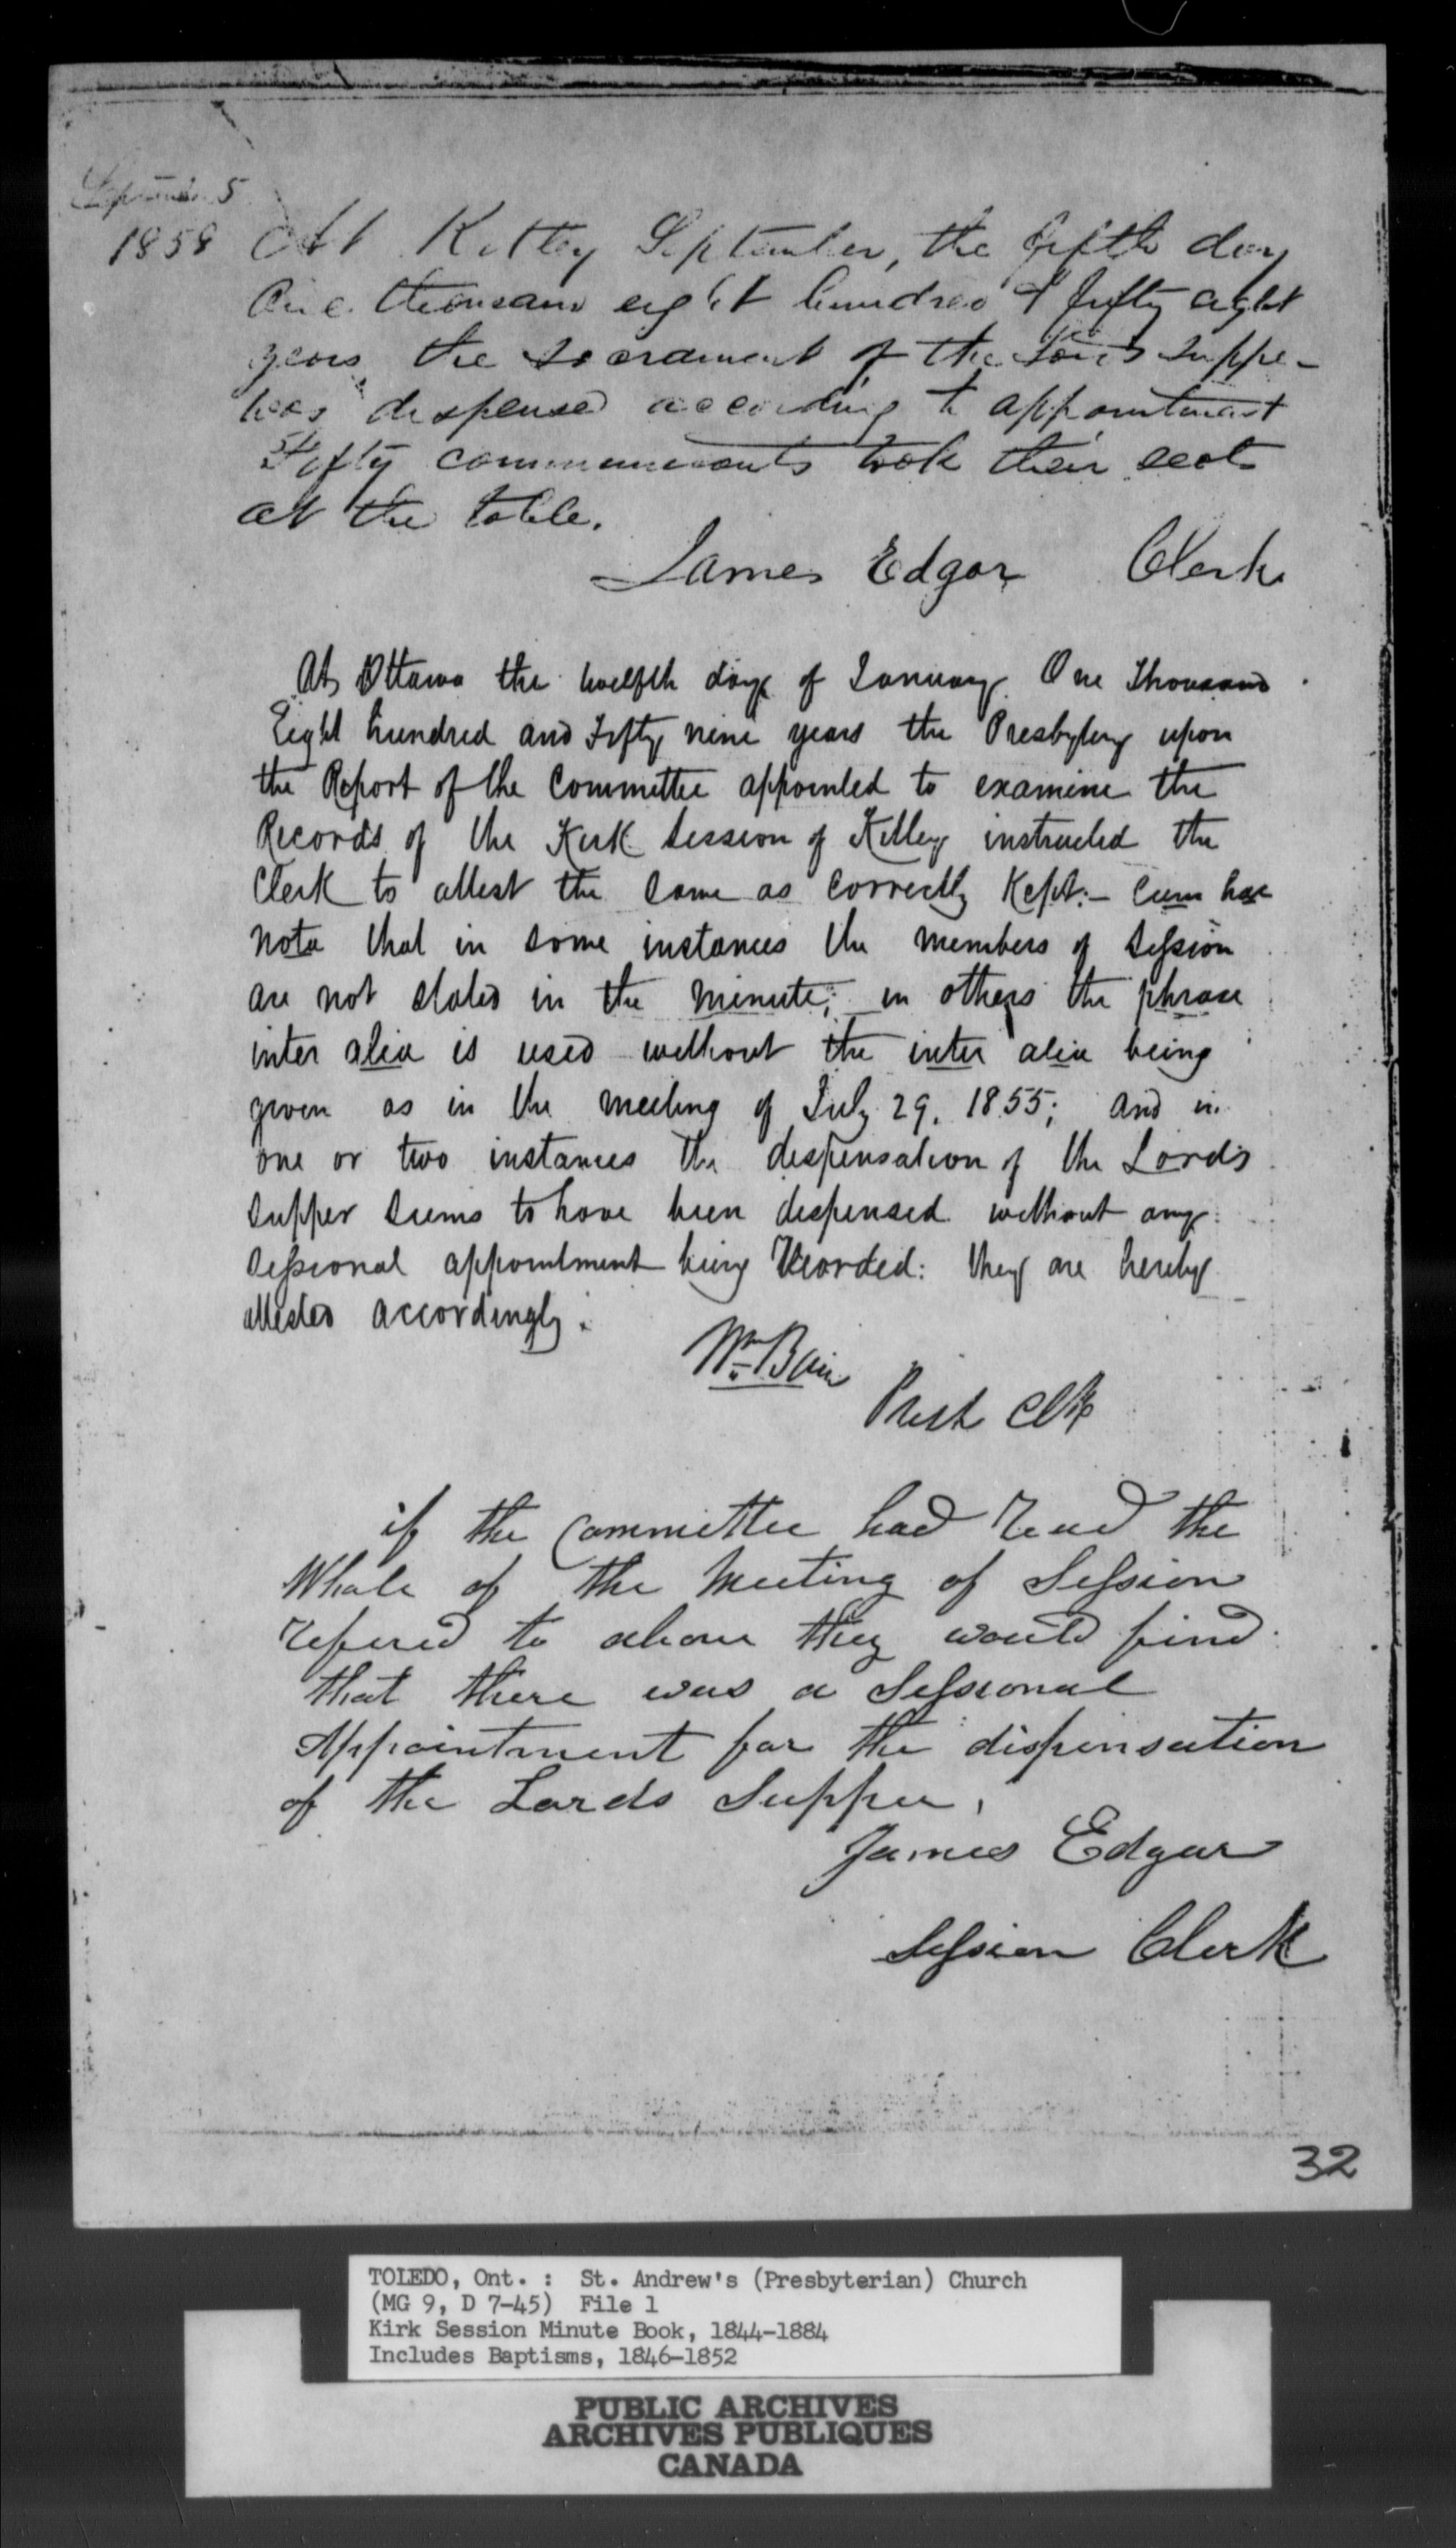 September 5
1858 At Kitley September, the fifth day
One thousand eight hundred & fifty eight
years the Sacrament of the Lord's Suppe-
was dispensed according to appointment
Fifty communicants took their seats
at the table.
James Edgar Clerk
At Ottawa the twelfth day of January One Thousand
Eight hundred and Fifty nine years the Presbytery upon
the Report of the Committee appointed to examine the
Records of the Kirk Session of Kitley instructed the
Clerk to attest the same as correctly Kept:- cum hac
nota that in some instances the members of Session
are not stated in the minute; in others the phrase
inter alia is used without the inter alia being
given as in the meeting of July 29. 1855; and in
one or two instances the dispensation of the Lord's
Supper seems to have been dispensed without any
Sessional appointment being Recorded: they are hereby
attested accordingly.
Wm Bain
Presb Clk
if the Committee had read the
Whole of the Meeting of Session
refered to above they would find
that there was a Sessional
Appointment for the dispensation
of the Lords Supper,
James Edgar
Session Clerk
32
TOLEDO, Ont. : St. Andrew's (Presbyterian) Church
(MG 9, D 7-45) File 1
Kirk Session Minute Book, 1844-1884
Includes Baptisms, 1846-1852
PUBLIC ARCHIVES
ARCHIVES PUBLIQUES
CANADA